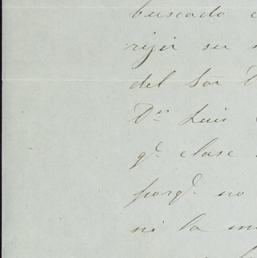 buscado
rijir su
del Sor
Dn Luis
qe. clase
porqe. no
ni la